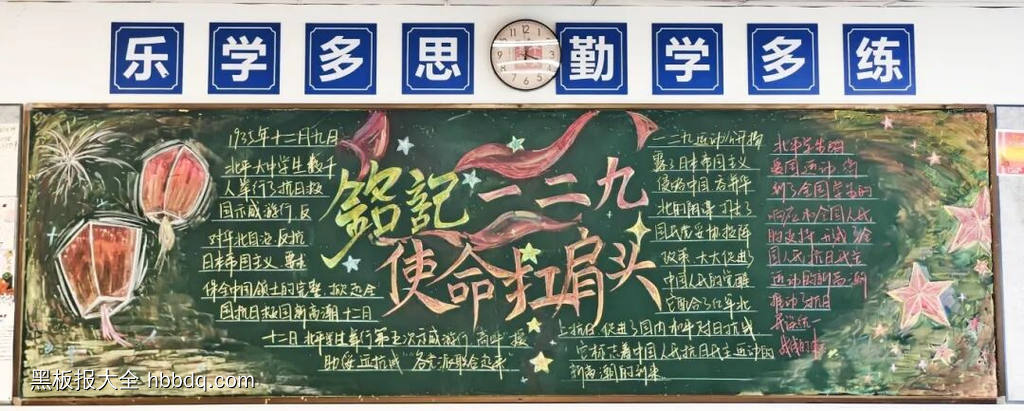 乐学多思 勤学多练
铭記一二九
使命扛肩头
1935年十二月九日
北平大中学生数千
人举行了抗日救
国示威游行,反
对华北自治,反抗
日本帝国主义,要求
保全中国领土的完整,掀起全
国抗日救国新高潮,十二月
十一日,北平学生举行第五次示威游行,高呼"援
助绥远抗战""各党派联合起来"
一二九运动公开揭
露了日本帝国主义
侵略中国,吞并华
北的阴谋,打击了
国民党妥协投降
政策,大大促进了
中国人民的觉醒
它配合了红军北
上抗日,促进了国内和平对日抗战
它标志着中国人民抗日民主运动的
新高潮的到来
北平学生的
爱国运动,得
到了全国学生的
响应和全国人民
的支持,形成了全
国人民抗日民主
运动的新高潮
推动了抗日
民族统
黑板报大全 hbbdq.com